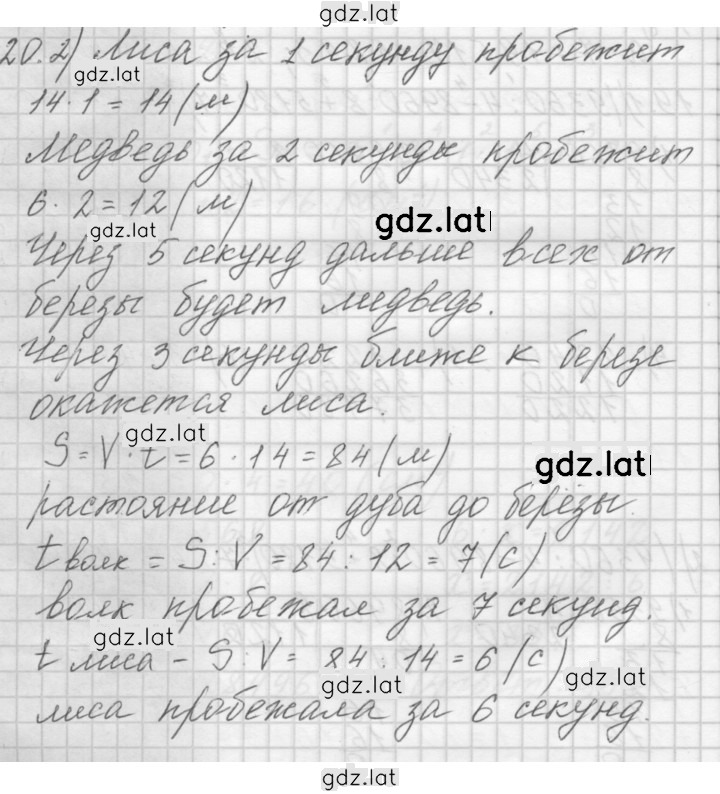 gdz.lat
20.2) Лиса за 1 секунду пробежит
gdz.lat
14·1=14(м)
Медведь за 2 секунды пробежит
6·2=12(м)
gdz.lat
gdz.lat
Через 5 секунд дальше всех от
березы будет медведь.
Через 3 секунды ближе к березе
окажется лиса.
gdz.lat
S=V·t=6·14=84(м)
gdz.lat
растояние от дуба до берёзы.
t волк = S:V=84:12=7(с)
волк пробежал за 7 секунд.
gdz.lat
t лиса - S:V= 84:14=6(с)
gdz.lat
gdz.lat
лиса пробежала за 6 секунд.
gdz.lat